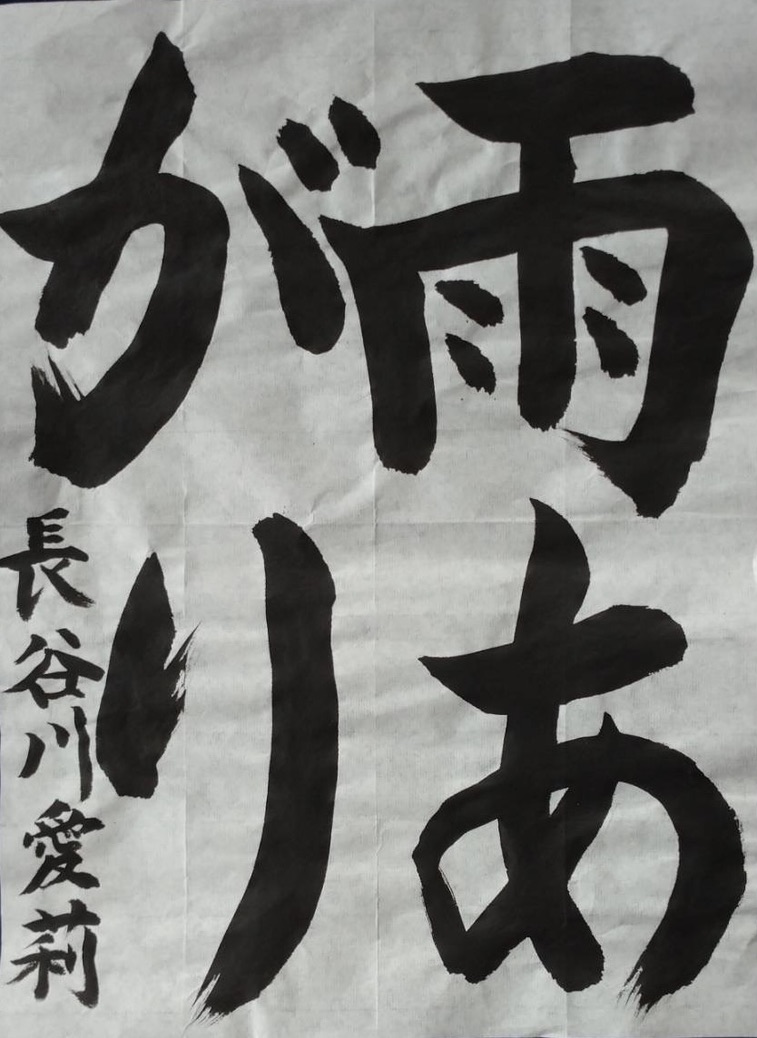 雨あ
がり
長谷川愛莉